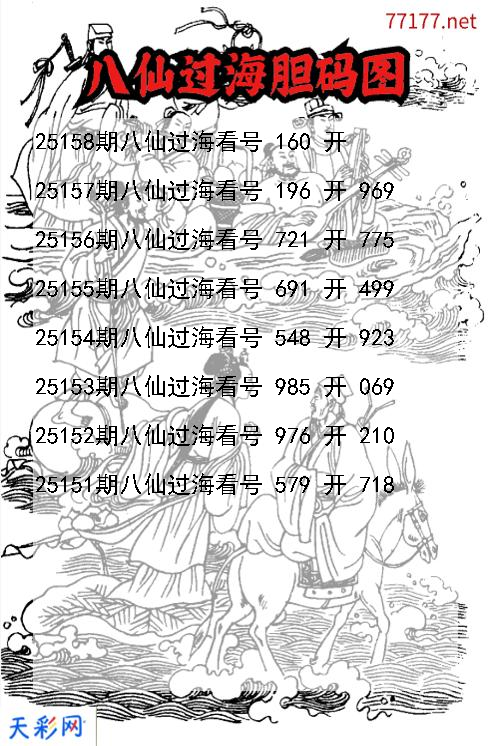 77177.net
八仙过海胆码图
25158期八仙过海看号 160 开
25157期八仙过海看号 196 开 969
25156期八仙过海看号 721 开 775
25155期八仙过海看号 691 开 499
25154期八仙过海看号 548 开 923
25153期八仙过海看号 985 开 069
25152期八仙过海看号 976 开 210
25151期八仙过海看号 579 开 718
天彩网